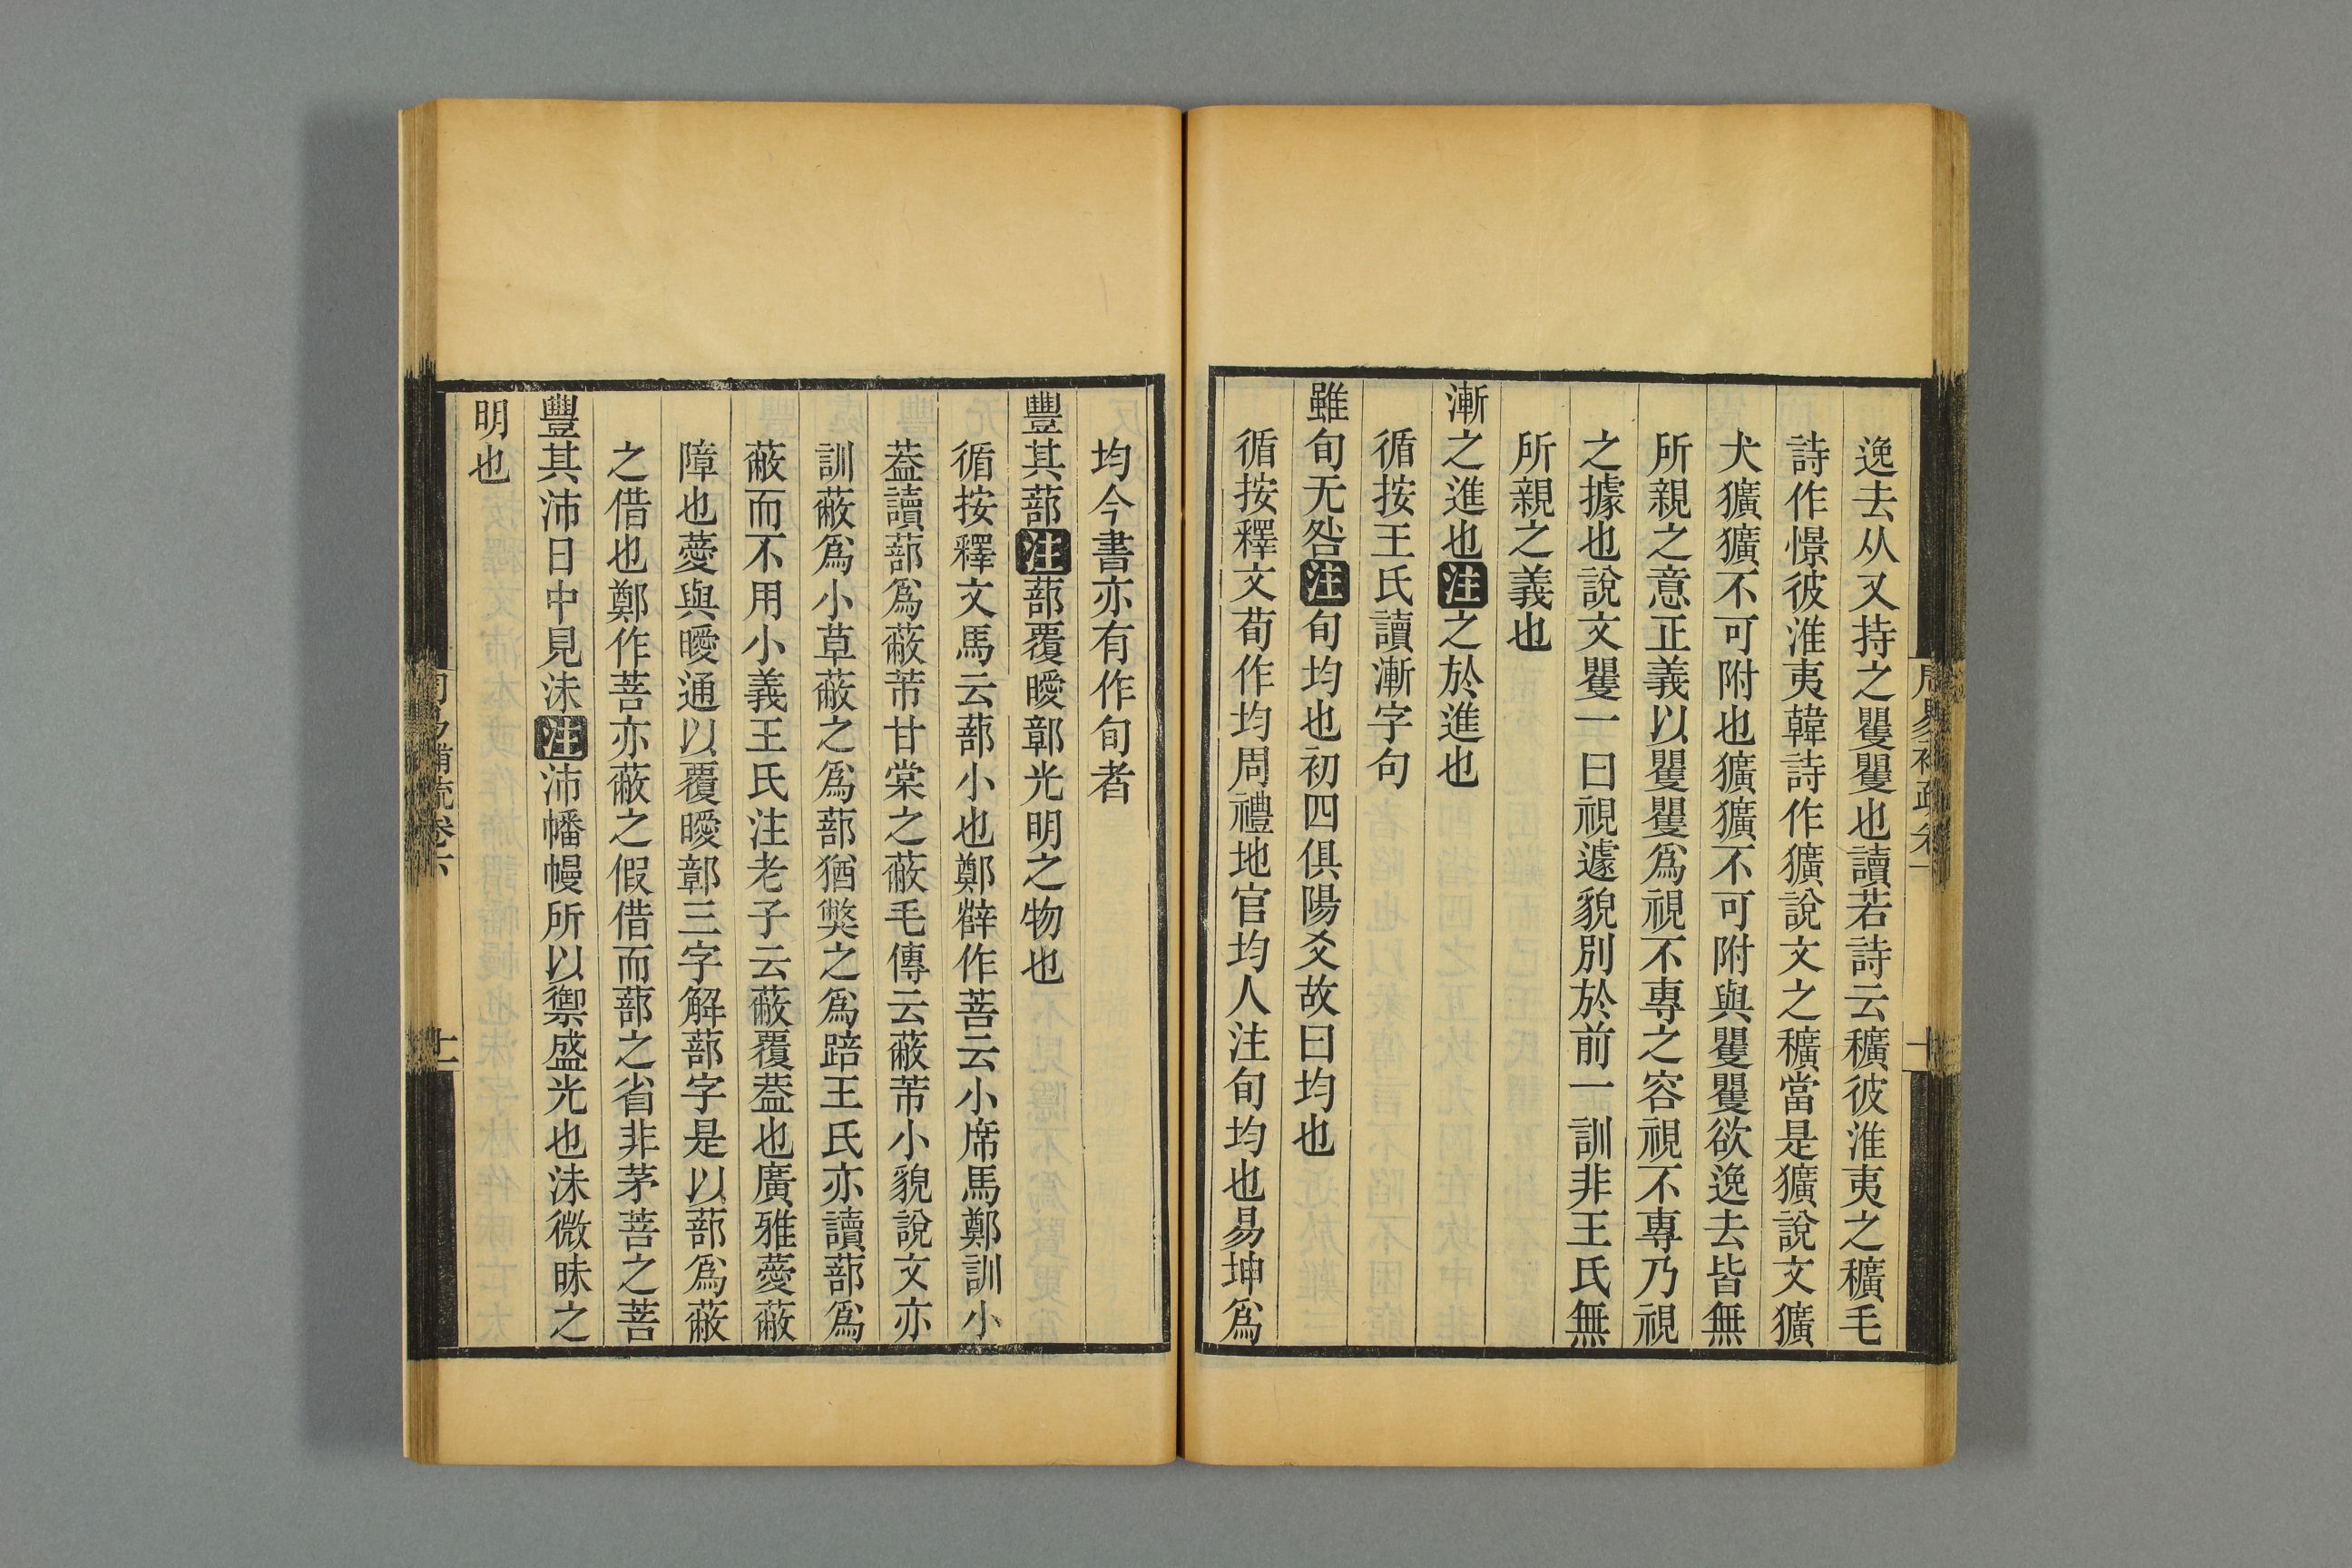 逸去从又持之矍矍也讀若詩云穬彼淮夷之穬毛
詩作憬彼淮夷韓詩作獷說文之穬當是獷說文獷
犬獷獷不可附也獷獷不可附與矍矍欲逸去皆無
所親之意正義以矍矍爲視不專之容視不專乃視
之據也說文矍一曰視遽貌別於前一訓非王氏無
所親之義也
漸之進也注之於進也
循按王氏讀漸字句
雖旬无咎注旬均也初四俱陽爻故曰均也
循按釋文荀作均周禮地官均人注旬均也易坤爲
均今書亦有作旬者
豐其蔀注蔀覆曖鄣光明之物也
循按釋文馬云蔀小也鄭薛作菩云小席馬鄭訓小
葢讀蔀爲蔽芾甘棠之蔽毛傳云蔽芾小貌說文亦
訓蔽爲小草蔽之爲蔀猶獘之爲踣王氏亦讀蔀爲
蔽而不用小義王氏注老子云蔽覆葢也廣雅薆蔽
障也薆與曖通以覆曖鄣三字解蔀字是以蔀爲蔽
之借也鄭作菩亦蔽之假借而蔀之省非茅菩之菩
豐其沛日中見沬注沛幡幔所以禦盛光也沬微昧之
明也
周易補疏卷六